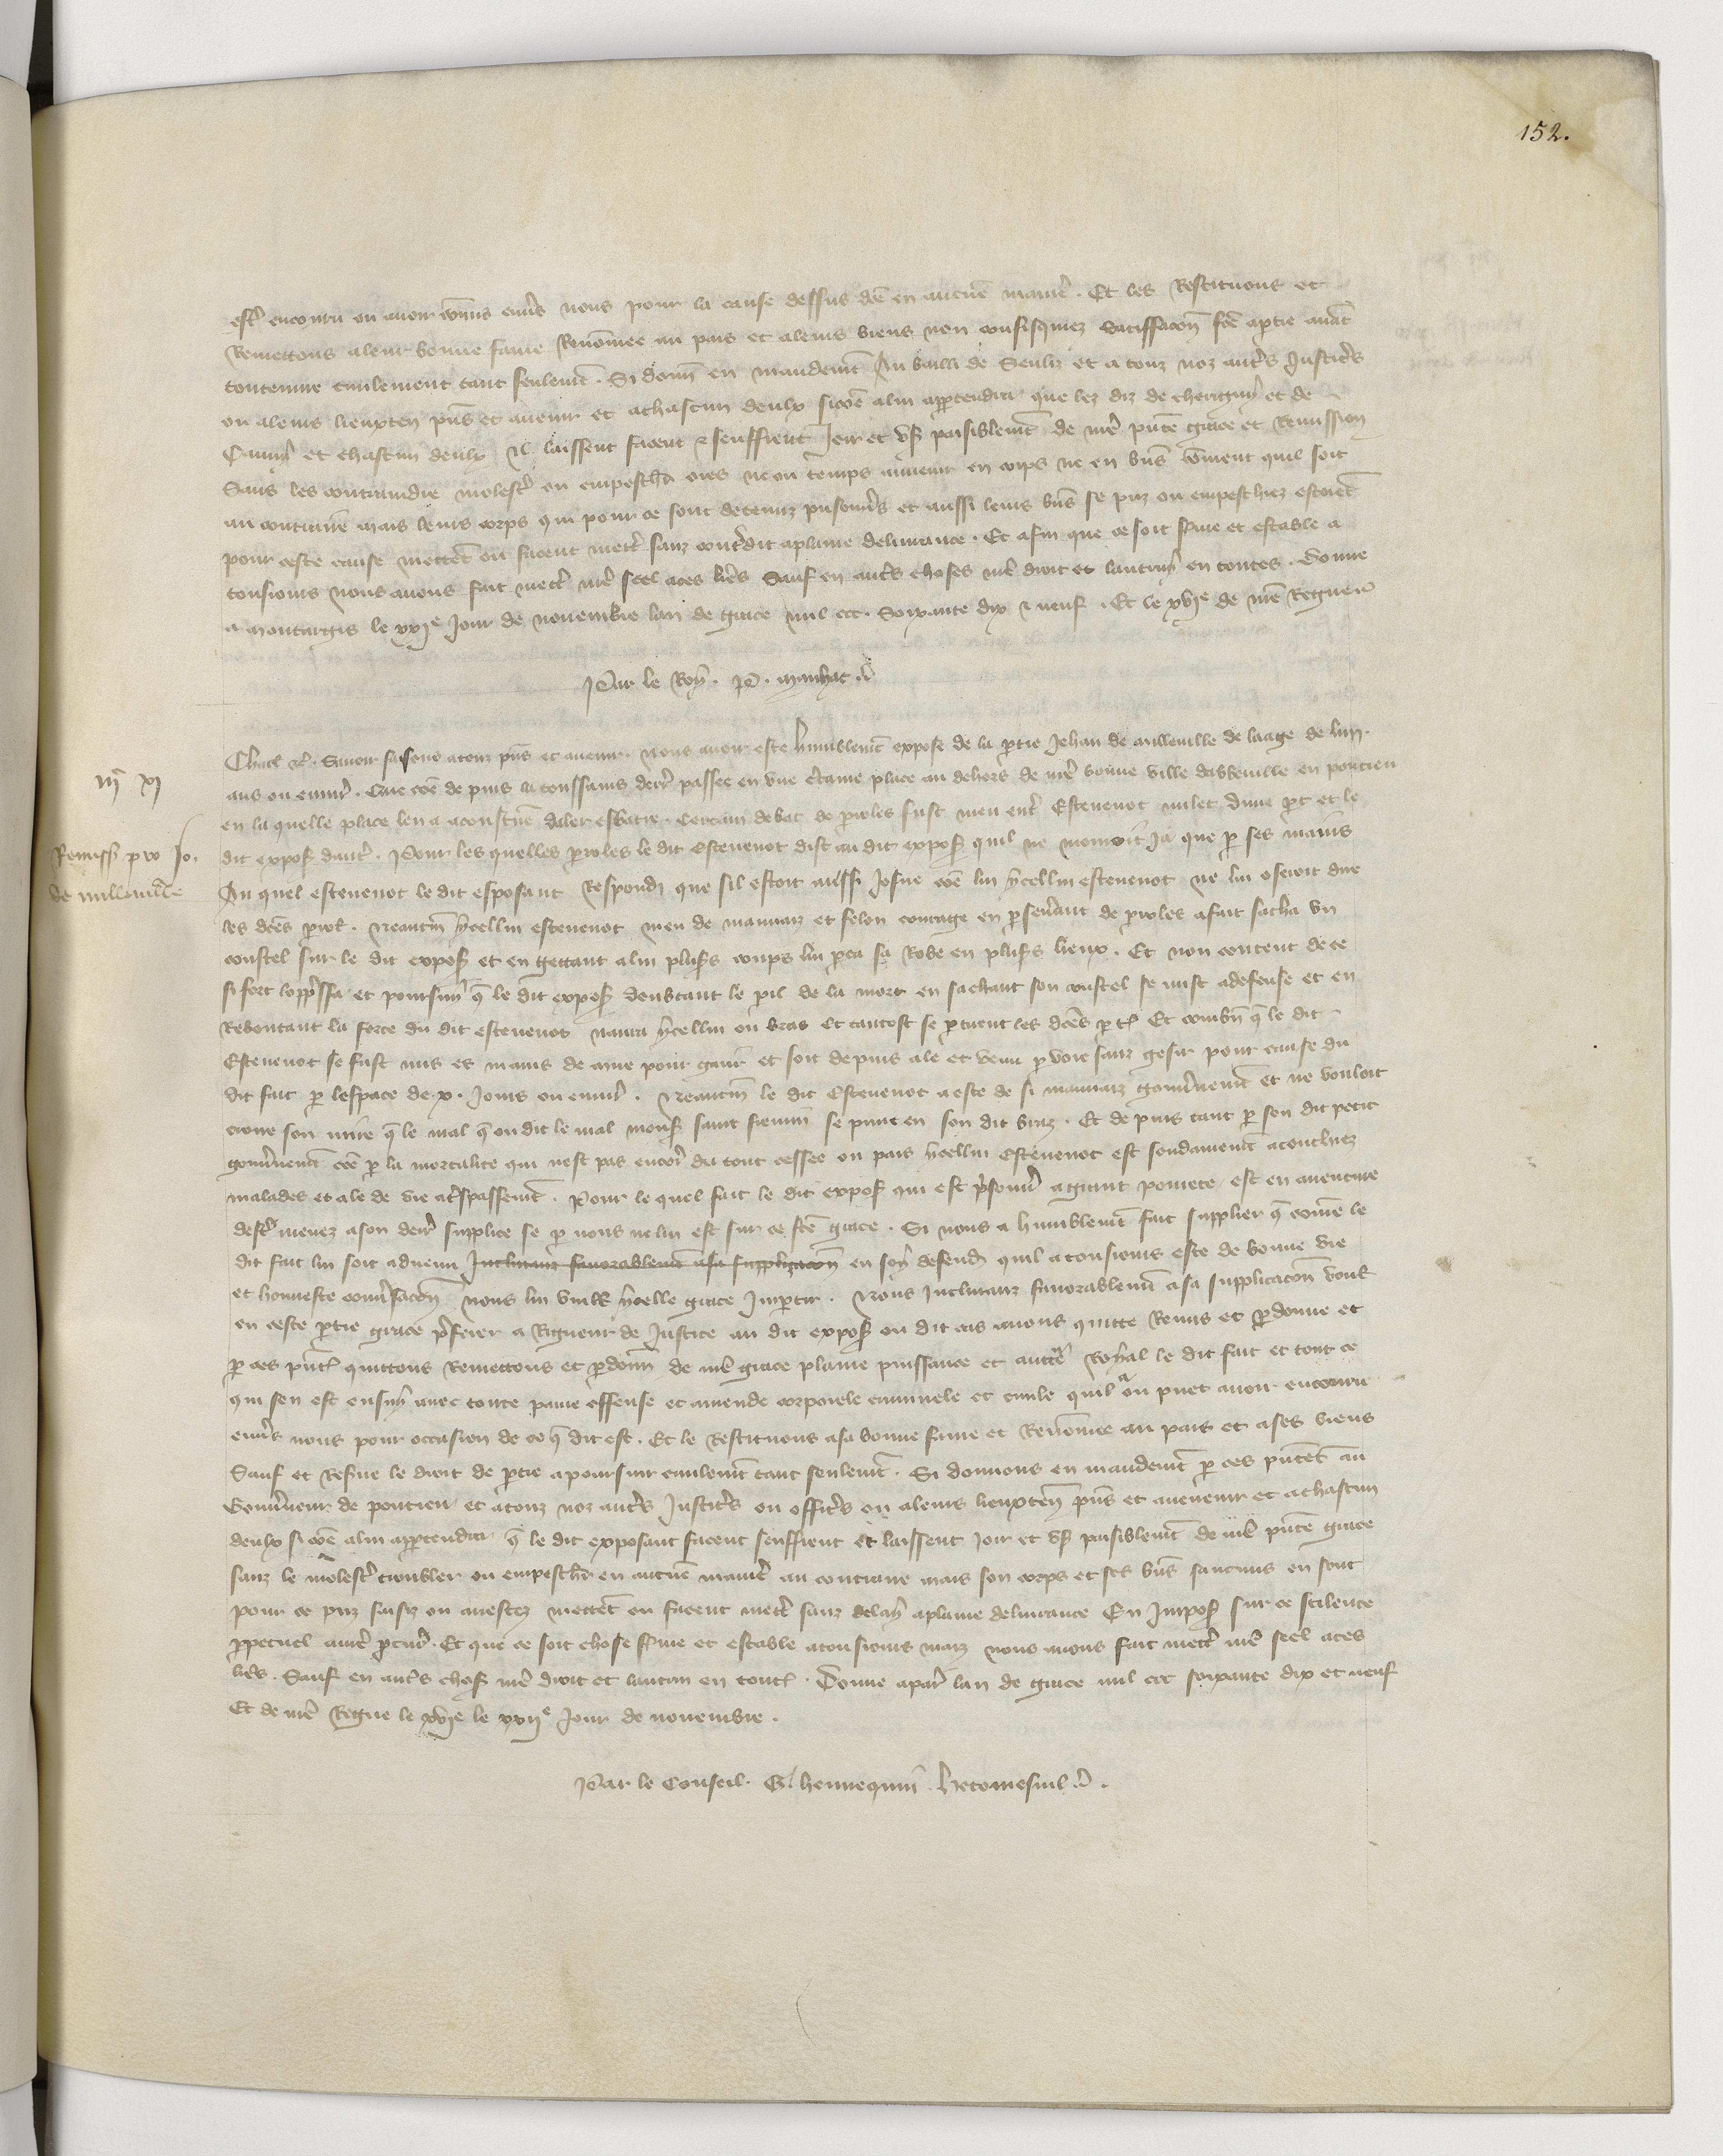 152.
estr̃ encouru ou avoir cõmis env̾s nous pour la cause dessus dcẽ en aucuñe manier̃. Et les Restituons et
Remettons aleur bonne fame Renom̃ee au pais et aleurs biens non confisquiez satiffacc̃on fcẽ aptie avãt
toutenvie civilement tant seulem̃t. Si donñ en mandem̃t Au bailli de Senliz et a touz noz autr̃s Justic̃rs
ou aleurs lieuxteñ p̃ns et avenir et achascun deulx sicoẽ alui apptendra que lez diz de cheriguy et de
Cauny et chascun deulx Il laissent facent & seuffrent Joir et us̃ paisiblem̃t de nr̃e p̃nte grace et Remission
Sans les contraindre molestr̃ ou empescħ ores ne ou temps avenir en corps ne en biñs com̃ent quil soit
au contraire mais leurs corps qui pour ce sont detenuz prisonñrs et aussi leurs biñs se prz ou empeschiez estoiẽt
pour ceste cause mettẽt ou facent mettr̃ sanz cont̾dit aplaine delivrance. Et afin que ce soit ferme et estable a
tousiours nous avons fait mettr̃ nr̃e seel aces lr̃es Sauf en autr̃s choses nr̃e droit et lautruy en toutes. Donne
a Montargis le xxjᵉ Jour de novembre lan de grace mil ccc. Soixante dix & neuf. Et le xvjᵉ de nr̃e Regne
Par le Roy. P. manhac
Charl̃ &c̃. Savoir faisons atouz p̃ns et avenir. nous avoir este humblem̃t expose de la ptie Jehan de milleville de laage de
ans ou envir̃. Que coẽ depuis la toussains derr̃ passee en une c̾taine place au dehors de nr̃e bonne ville dabbeville en pontieu
en la quelle place len a acoustuñe daler esbatre. Certain debat de proles fust meu entr̃ Estevenot vulet dune pt et le
dit expos̃ dautr̃. Pour les quelles proles le dit Estevenot dist au dit expos̃ quil ne mouroit Ja que p ses mains
Au quel estevenot le dit exposant Respond̃ que sil estoit aussi Josne coẽ lui ycellui estevenot ne lui oseroit dire
les dcẽs prol̃. Neantm̃ ycellui estevenot meu de mauvaiz et felon courage en psev̾ant de proles afait sachа un
coustel sur le dit expos̃ et en gettant alui plus̃s coups lui pca sa Robe en plus̃s lieux. Et non content de ce
si fort loppressa et poursuiy q̃ le dit expos̃ doubtant le pil de la mort en sachant son coustel se mist adefense et en
Reboutant la force du dit estevenot navra ycellui ou bras Et tantost se ptirent les dcẽs pt̃. Et combñ q̃ le dit
Estevenot se fust mis es mains de mire pour garir et soit depuis ale et venu p voie sanz gesir pour cause du
dit fait p lespace de.x. Jours ou envir̃. Neantm̃ le dit Estevenot a este de si mauvaiz gouv̾nem̃t et ne vouloit
croire son mire q̃ le mal q̃ on dit le mal mons̃ saint firmin se prinst en son dit braz. Et depuis tant p son dit petit
gouv̾nem̃t coẽ p la mortalite qui nest pas encor̃ du tout cessee ou pais ycellui Estevenot est soudainem̃t acouchiez
malades et ale de vie atr̃spassem̃t. Pour le quel fait le dit expos̃ qui est p̃sonnr̃ agrant povrete est en aventure
destr̃ menez ason derr̃ supplice se p nous ne lui est sur ce fcẽ grace. Si nous a humblem̃t fait supplier q̃ com̃e le
dit fait lui soit advenu Inclinanz favorablem̃t asa supplicacõn en soy defend̃ quil a tousiours este de bonne vie
et honneste conv̾sacõn nous lui vuill̃ ycelle grace Impartir. Nous Inclinanz favorablem̃t asa supplicacõn voul̃
en ceste ptie grace p̃ferer a Rigueur de Justice au dit expos̃ ou dit cas avons quitte Remis et pdonne et
p ces p̃nt̃ quittons Remettons et pdonñ de nr̃e grace plaine puissance et auctẽ Royal le dit fait et tout ce
qui sen est ensuy avec toute paine offense et amende corporele criminele et civile quil a ou puet avoir encouru
env̾s nous pour occasion de ce q̃ dit est. Et le Restituons asa bonne fame et Renom̃ee au pais et ases biens
Sauf et Res̾ve le droit de ptie apoursuir civilem̃t tant seulem̃t. Si donnons en mandem̃t p ces p̃ntẽt au
Gouv̾neur de pontieu et atouz noz autr̃s Justic̃rs ou offic̃rs ou aleurs lieuxteñ p̃ns et avenir et achascun
deulx si coẽ alui apptendra q̃ le dit exposant facent seuffrent et laissent Joir et us̃ paisiblem̃t de nr̃e p̃nte grace
sanz le molestr̃ troubler ou empescħ en aucuñe manier̃ au contraire mais son corps et ses biñs saucuns en sont
pour ce prz saisiz ou arrestez mettẽt ou facent mettr̃ sanz delay aplaine delivrance En Impos̃ sur ce scilence
ppetuel anr̃e pcur̃. Et que ce soit chose ferme et estable atousiours maiz nous avons fait mettr̃ nr̃e seel aces
lr̃es. Sauf en autr̃s chos̃ nr̃e droit et lautrui en tout̃. Donne apar̃ lan de grace mil ccc soixante dix et neuf
Et de nr̃e Regne le xvjᵉ le xxijᵉ Jour de novembre.
Par le Conseil. G. hennequin. hetomesnil
iijᶜ xj
Remiss̃ p̱ro Jo.
de milleville